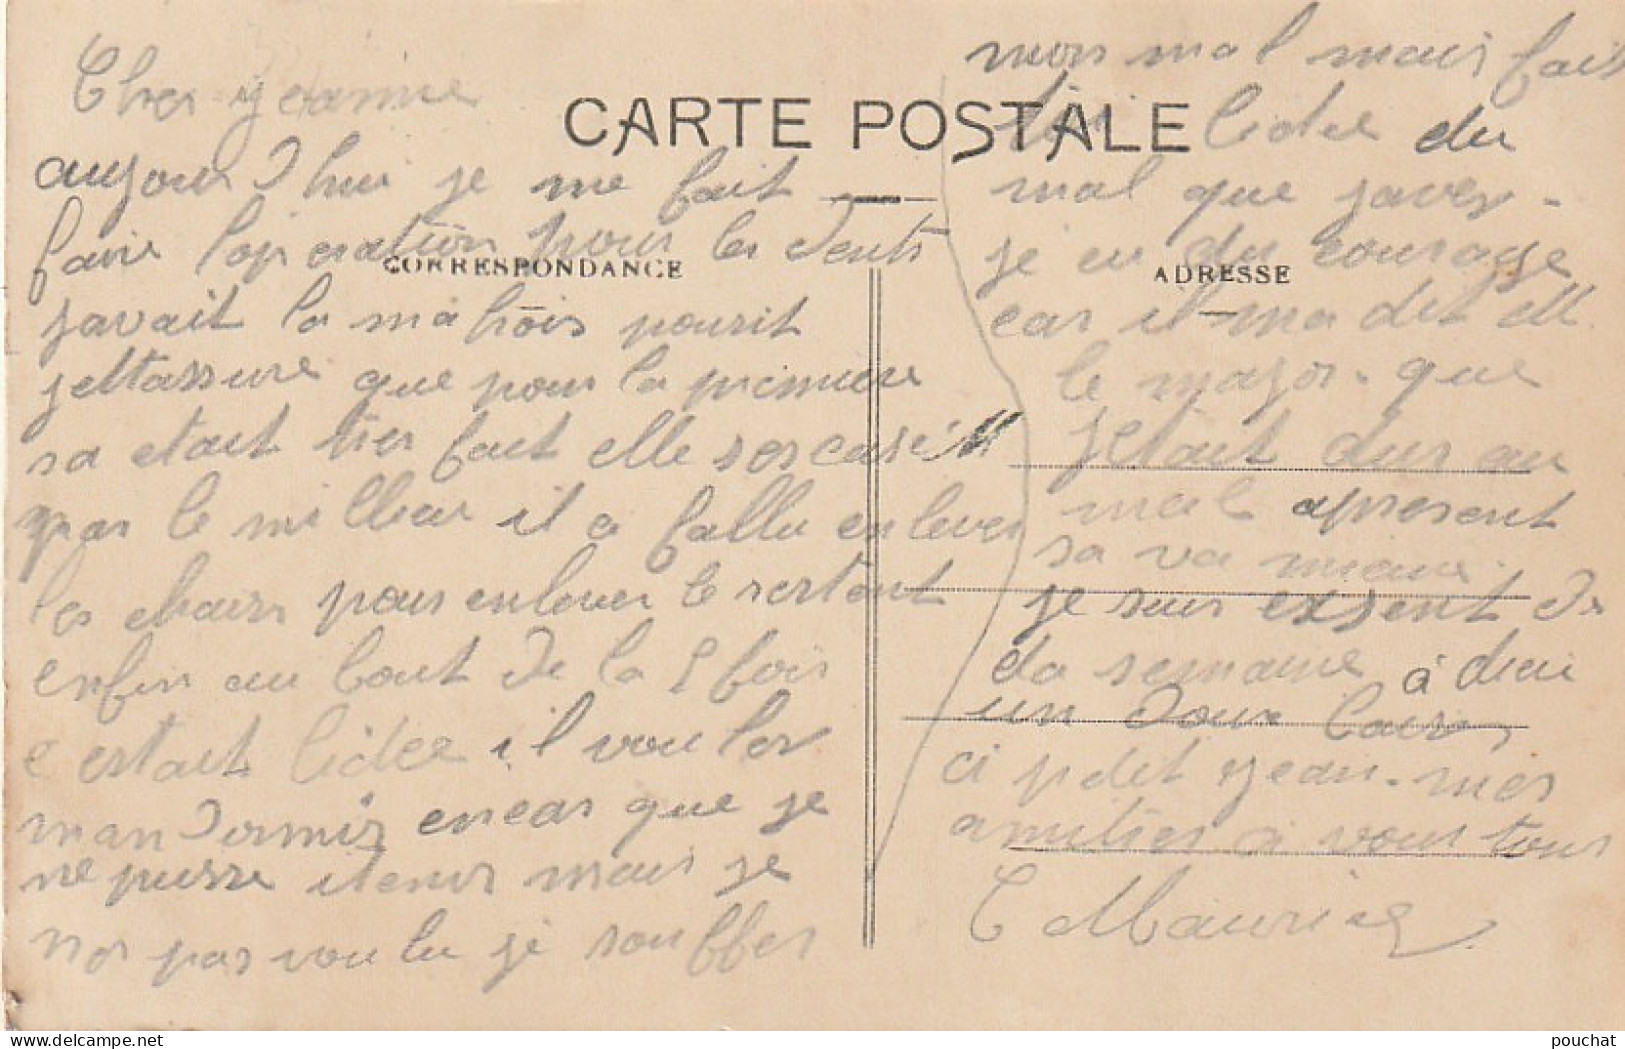 CARTE POSTALE
CORRESPONDANCE
ADRESSE
Cher Jeanine
aujour dhui je me fait
faire loperation pour les dents
javait la machois pourit
jettassure que pour la premiere
sa etait tres fait elle ses casé
par le millieu il a fallu enlever
les chairs pour enlever le restant
enfin au bout de la 5 fois
c estait lidee il vouler
mandormir encas que je
ne puisse itenir mais je
nes pas voulu je souffer
mon mal mais fait
lidee du
mal que javez
je eu du courage
car il ma dit
le major que
jetait dur au
mal apresent
sa va mieux
je suis exsent de
la semaine à dieu
un doux
ci petit jean mes
amities à vous tous
Maurice
pouchat